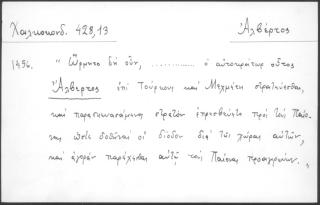 Χαλκοκονδ. 428,13
Ἀλβέρτος
1456.
" Ὥρμητο δὴ οὖν, ............... ὁ αὐτοκράτωρ οὗτος
Ἀλβέρτος ἐπὶ Τούρκους καὶ Μεχμέτη στρατεύεσθαι,
καὶ παρασκευασάμενος στρατὸν ἐπρεσβεύετο πρὸς τοὺς Παίο-
νας ὥστε δοθῆναι οἱ δίοδον διὰ τῆς χώρας αὐτῶν,
καὶ ἀγορὰν παρέχεσθαι αὐτῷ τοὺς Παίονας προηγόρευεν. "